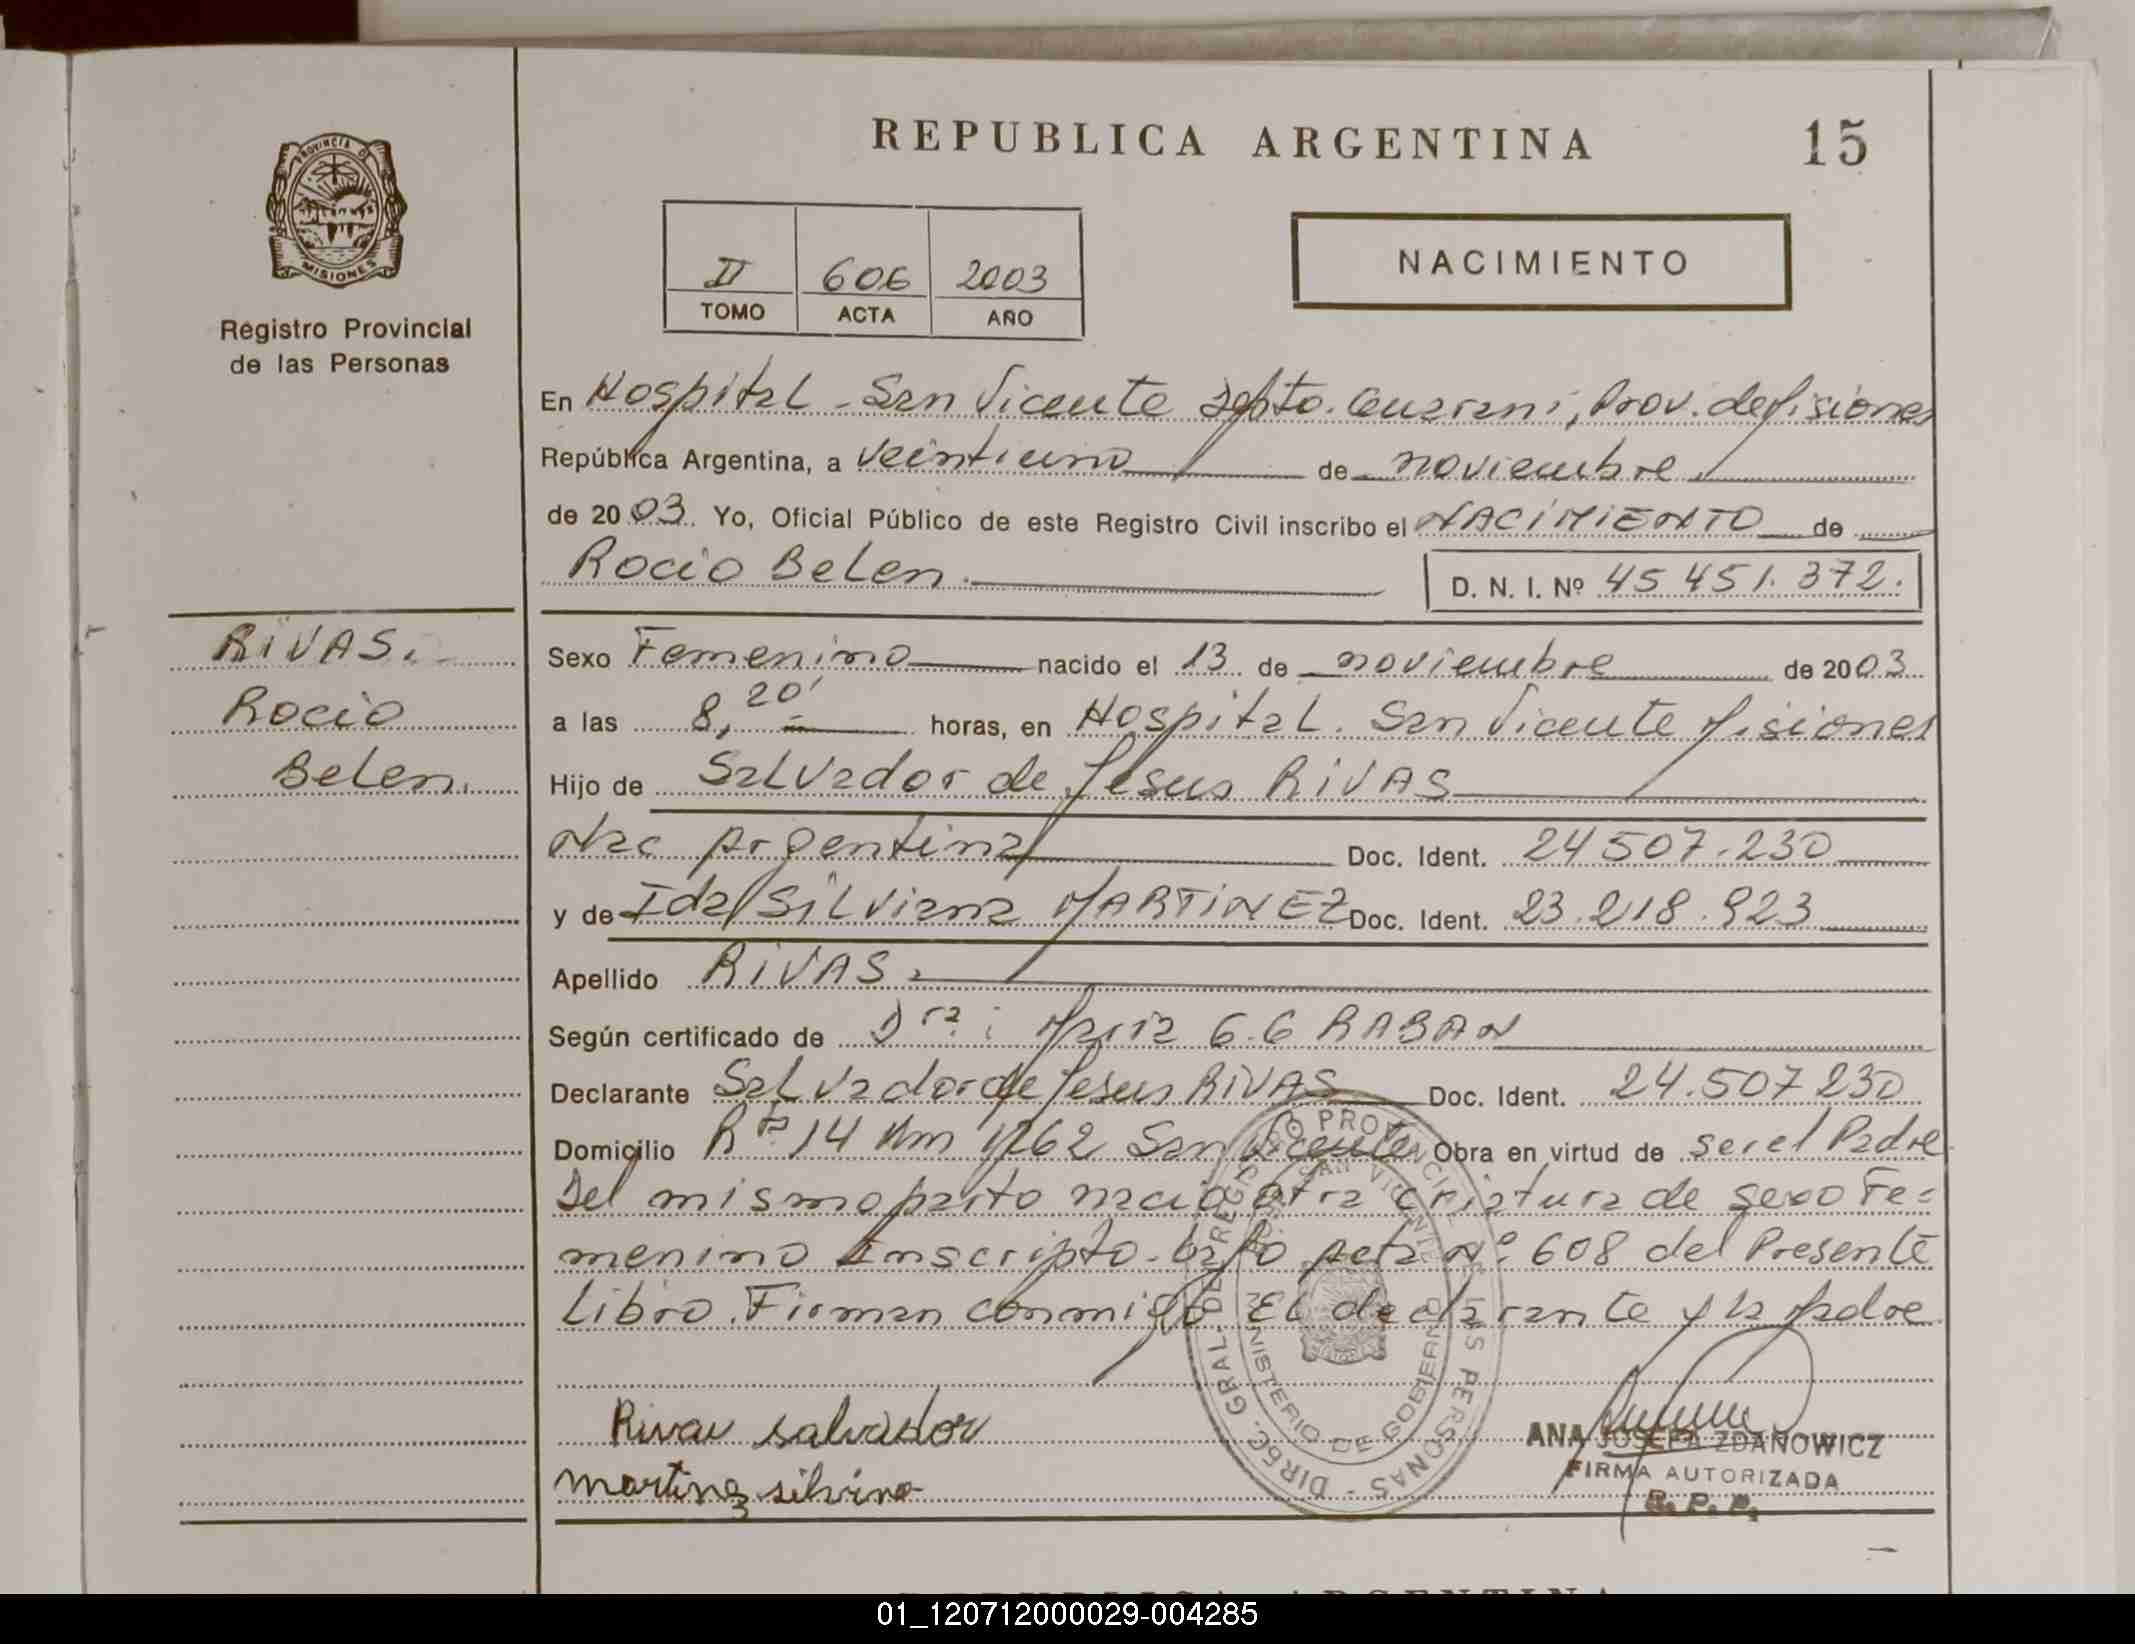 REPUBLICA ARGENTINA
15
PROVINCIA DE
MISIONES
Registro Provincial
de las Personas
II 606 2003
TOMO ACTA AÑO
NACIMIENTO
En Hospital - San Vicente Depto. Guarani, Prov. de Misiones
República Argentina, a veintiuno de noviembre
de 2003. Yo, Oficial Público de este Registro Civil inscribo el NACIMIENTO de
Rocio Belen.
D. N. I. Nº 45 451. 372.
RIVAS.
Rocio
Belen.
Sexo Femenino nacido el 13 de noviembre de 2003
a las 8,20' horas, en Hospital. San Vicente Misiones
Hijo de Salvador de Jesus RIVAS
Nac Argentina Doc. Ident. 24 507.230
y de Ida Silviana MARTINEZ Doc. Ident. 23.218.923
Apellido RIVAS.
Según certificado de Dra: Maria G.G RABAN
Declarante Salvador de Jesus RIVAS Doc. Ident. 24.507 230
Domicilio Rta 14 Km 1262 San Vicente Obra en virtud de ser el Padre
Del mismo parto nació otra criatura de sexo Fe=
menino Inscripto bajo Acta Nº 608 del Presente
Libro. Firman conmigo El declarante y la Madre
Rivas Salvador
Martinez silvina
DIREC. GRAL. DEL REGISTRO PROVINCIAL DE LAS PERSONAS -
SAN VICENTE
MINISTERIO DE GOBIERNO
ANA JOSEFA ZDANOWICZ
FIRMA AUTORIZADA
R. P. P.
REPUBLICA ARGENTINA
01_120712000029-004285